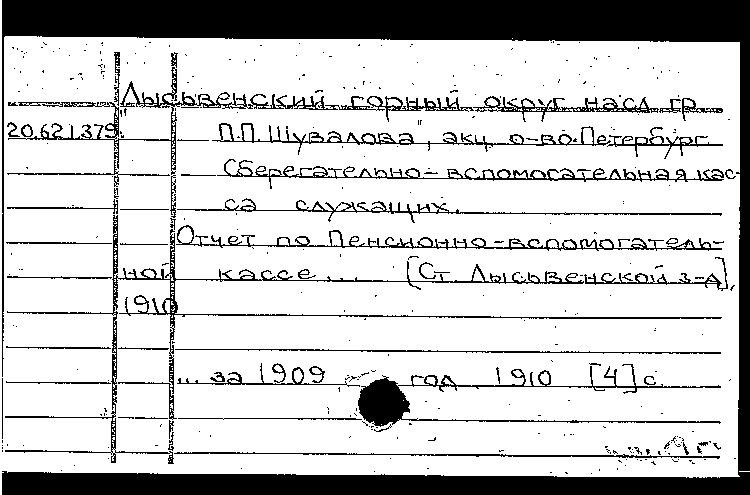 "Лысьвенский горный округ насл. гр.
20.621.379. П.П. Шувалова", акц. о-во. Петербург.
Сберегательно-вспомогательная кас-
са служащих.
Отчет по Пенсионно-вспомогатель-
ной кассе... [Ст. Лысьвенской з-д],
1910.
... за 1909 год. 1910 [4] с.